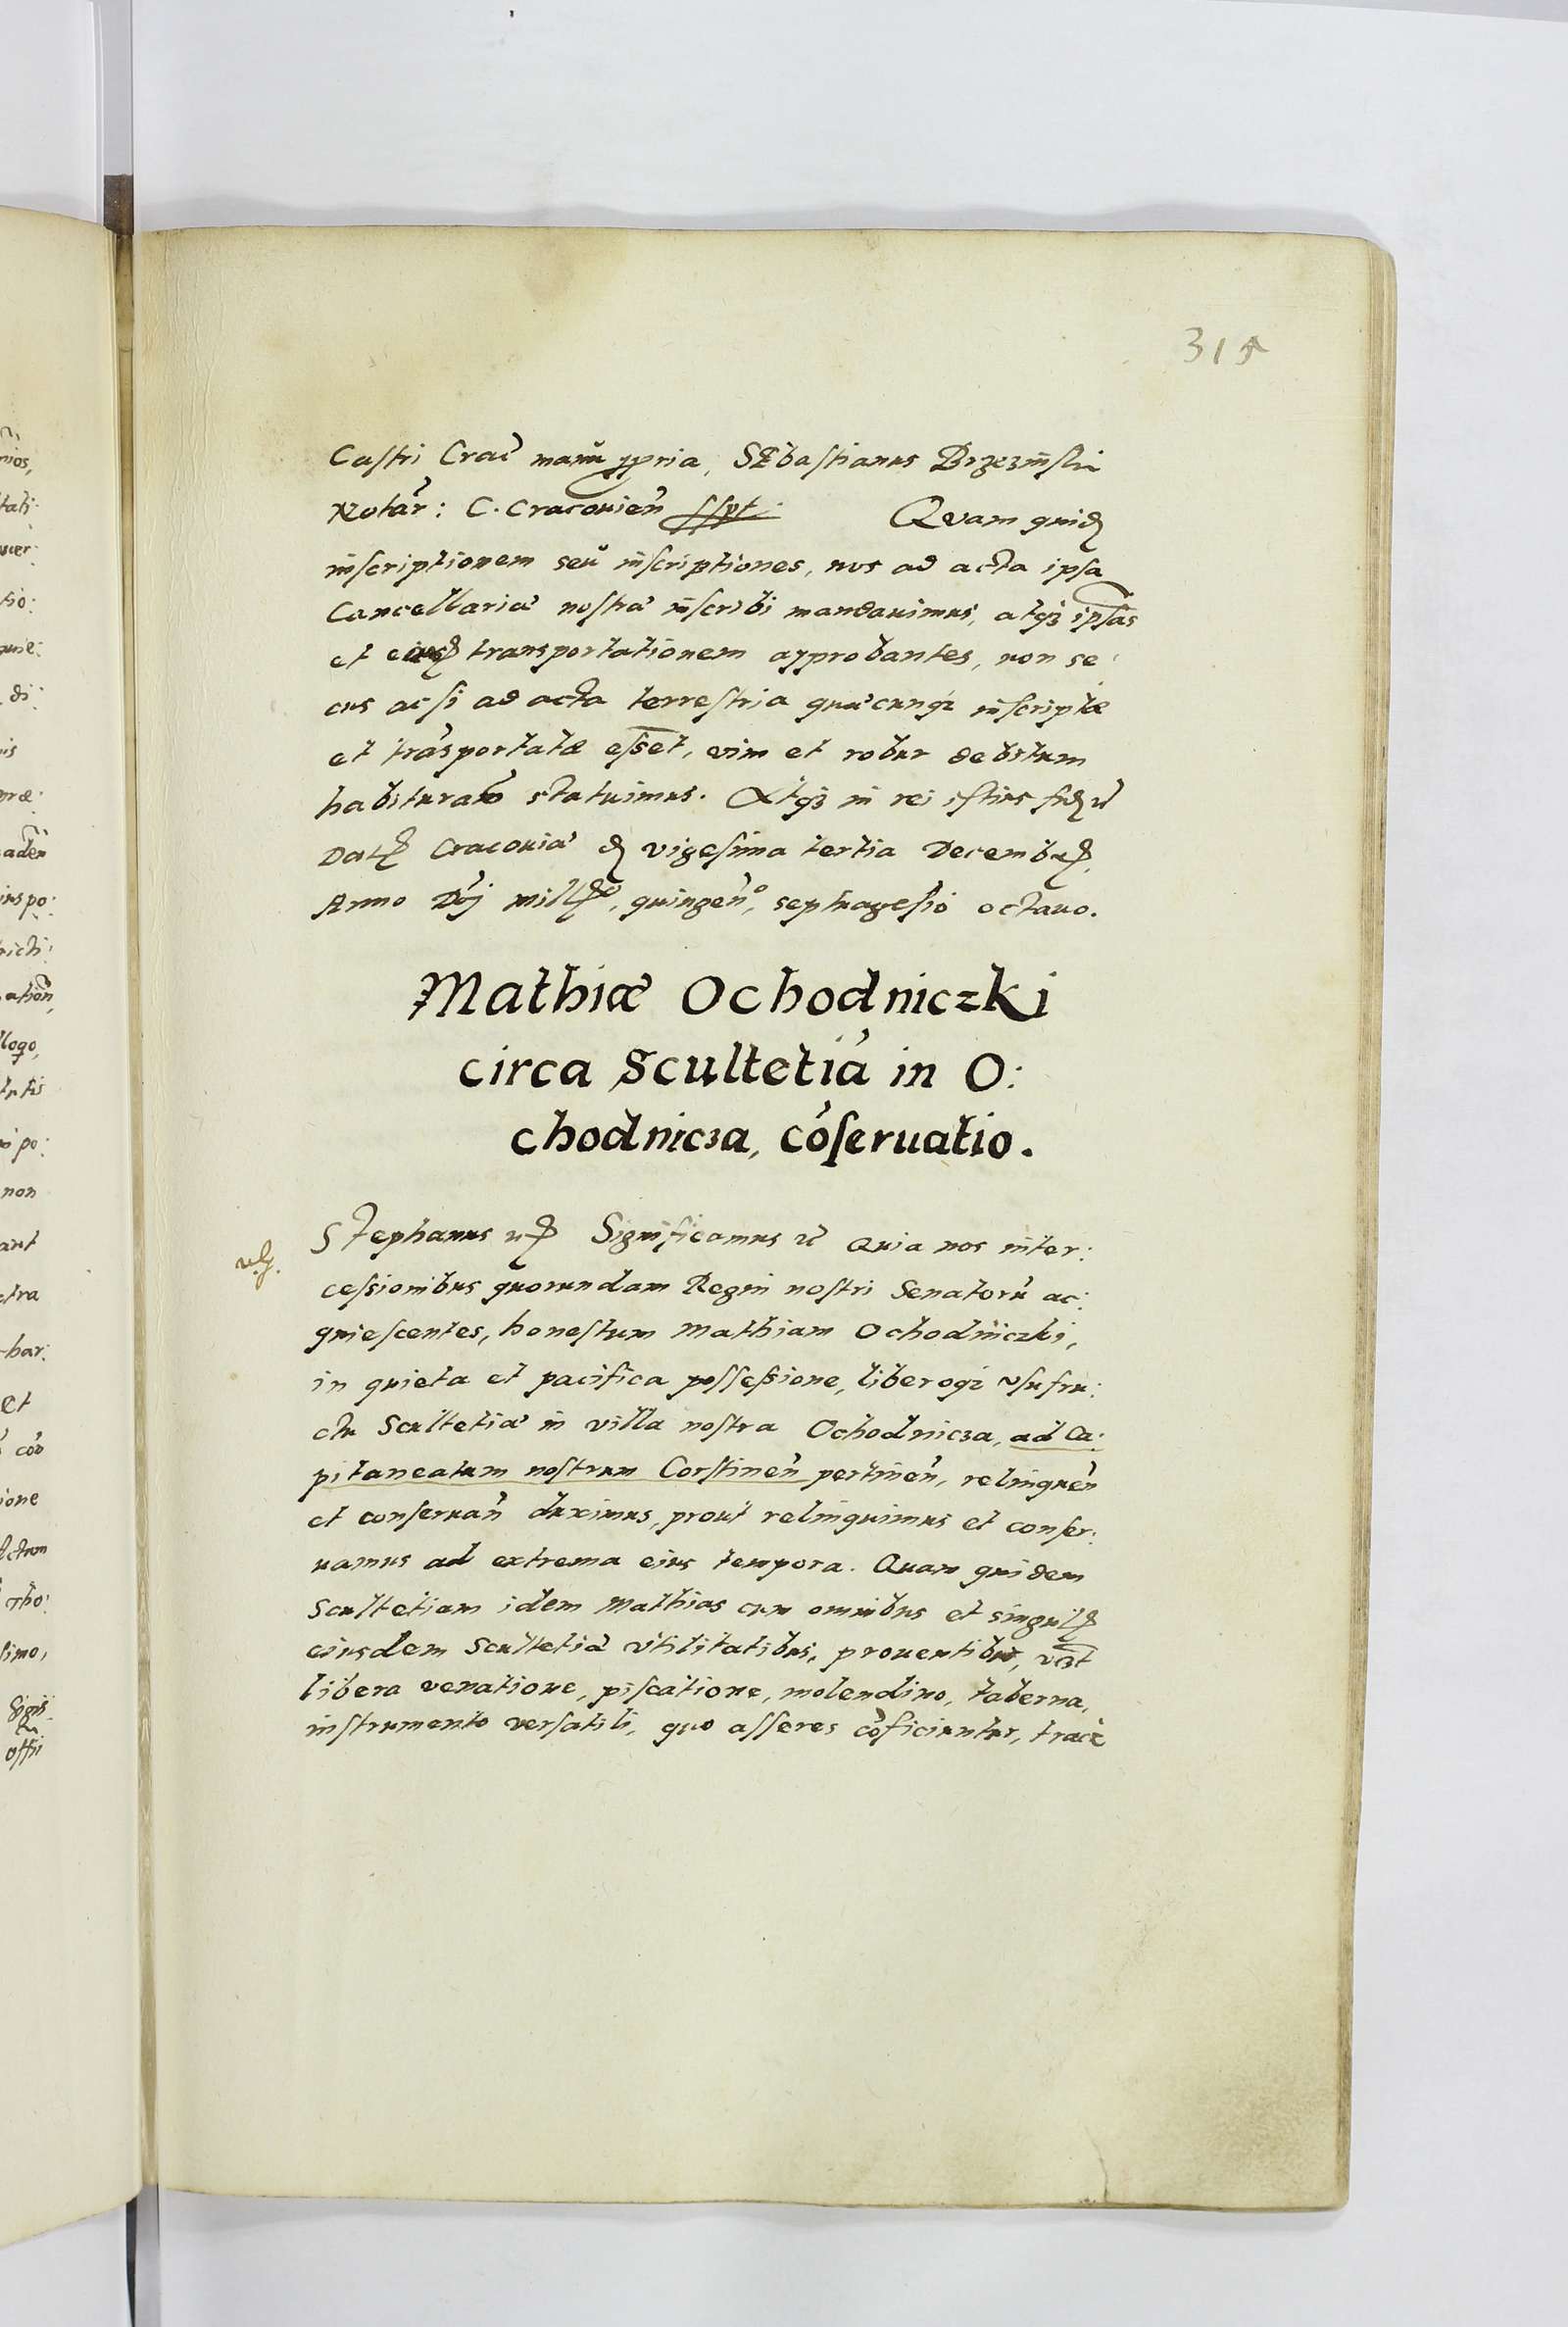 315
Castri Crac̃ manu ppria, Sebastianus Brzezinski
Notar̃: C. Cracouien̄ sspt. Quam quid
inscriptionem seu inscriptiones, nos ad acta ipsa
Cancellariæ nostræ inscribi mandauimus, atqꝫ ipsas
et transportationem approbantes, non se:
cus ac si ad acta terrestria quæcunqꝫ inscriptæ
et trāsportatæ esset, vim et robur debitum
habituram statuimus. Atqꝫ in rei istius fid
Dat Cracouiæ d vigesima tertia Decembr
Anno Dnj mill, quingen̄º, septuagesīo octauo.
Mathiæ Ochodniczki
circa Scultetiā in O:
chodnicza, cōseruatio.
Stephanus Significamus Quia nos inter:
cessionibus quorundam Regni nostri Senatorū ac:
quiescentes, honestum Mathiam Ochodniczki,
in quieta et pacifica possessione, liberoqꝫ vsufru:
ctu Scultetiæ in villa nostra Ochodnicza, ad Ca:
pitaneatum nostrum Corstinen̄ pertinen̄, relinquen̄
et conseruan̄ duximus, prout relinquimus et conser:
uamus ad extrema eius tempora. Quam quidem
Scultetiam idem Mathias cum omnibus et singul
eiusdem Scultetiæ vtilitatibus, prouentibus,
libera venatione, piscatione, molendino, taberna,
instrumento versatili, quo asseres cōficiuntur,